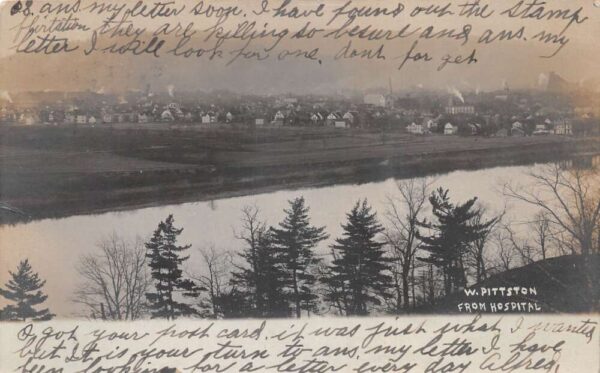 & ans my letter soon. I have found out the stamp
flirtation they are killing so besure and ans. my
letter I will look for one. dont for get
W. PITTSTON
FROM HOSPITAL
I got your post card. it was just what I wanted
but It is your turn to ans, my letter I have
been looking for a letter every day Alfred,